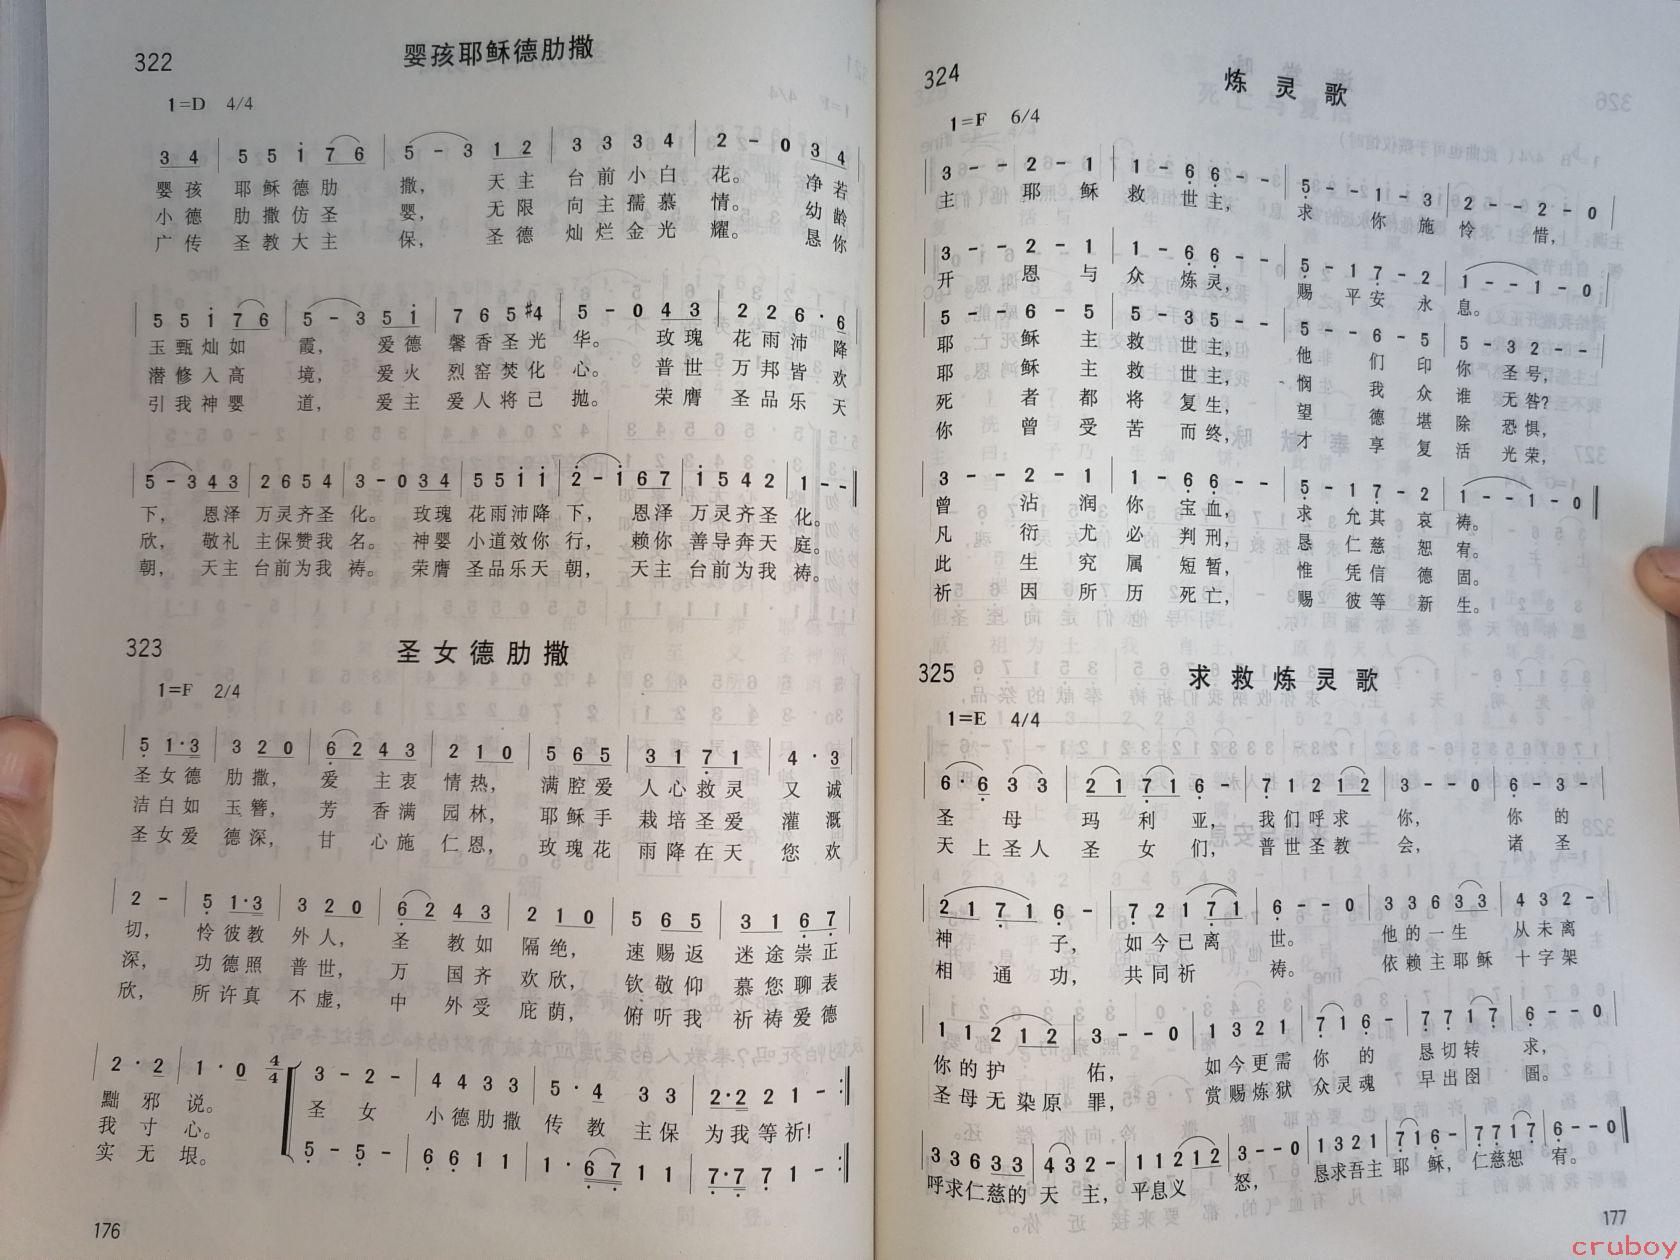 322 婴孩耶稣德肋撒
1=D 4/4
3 4 | 5 5 i 7 6 | 5 - 3 1 2 | 3 3 3 4 | 2 - 0 3 4
婴孩 耶稣德肋 撒， 天主 台前小白 花。 净若
小德 肋撒仿圣 婴， 无限 向主孺慕 情。 幼龄
广传 圣教大主 保， 圣德 灿烂金光 耀。 恳你
5 5 i 7 6 | 5 - 3 5 i | 7 6 5 #4 | 5 - 0 4 3 | 2 2 6 · 6
玉甄灿如 霞， 爱德 馨香圣光 华。 玫瑰 花雨沛降
潜修入高 境， 爱火 烈窑焚化 心。 普世 万邦皆欢
引我神婴 道， 爱主 爱人将己 抛。 荣膺 圣品乐天
5 - 3 4 3 | 2 6 5 4 | 3 - 0 3 4 | 5 5 i i | 2 - i 6 7 | i 5 4 2 | 1 - - ‖
下， 恩泽 万灵齐圣 化。 玫瑰 花雨沛降 下， 恩泽 万灵齐圣 化。
欣， 敬礼 主保赞我 名。 神婴 小道效你 行， 赖你 善导奔天 庭。
朝， 天主 台前为我 祷。 荣膺 圣品乐天 朝， 天主 台前为我 祷。
323 圣女德肋撒
1=F 2/4
5 1·3 | 3 2 0 | 6 2 4 3 | 2 1 0 | 5 6 5 | 3 1 7 1 | 4 · 3
圣女德 肋撒， 爱 主衷 情热， 满腔爱 人心救灵 又 诚
洁白如 玉簪， 芳 香满 园林， 耶稣手 栽培圣爱 灌 溉
圣女爱 德深， 甘 心施 仁恩， 玫瑰花 雨降在天 您 欢
2 - | 5 1·3 | 3 2 0 | 6 2 4 3 | 2 1 0 | 5 6 5 | 3 1 6 7
切， 怜彼教 外人， 圣 教如 隔绝， 速赐返 迷途崇正
深， 功德照 普世， 万 国齐 欢欣， 钦敬仰 慕您聊表
欣， 所许真 不虚， 中 外受 庇荫， 俯听我 祈祷爱德
2 · 2 | 1 · 0 4/4 3 - 2 - | 4 4 3 3 | 5 · 4 3 3 | 2·2 2 1 - :‖
黜 邪 说。 圣 女 小德肋撒 传 教 主保 为我等祈！
我 寸 心。
实 无 垠。
5 - 5 - | 6 6 1 1 | 1 · 6 7 1 1 | 7·7 7 1 - :‖
176
324 炼灵歌
1=F 6/4
3 - - 2 - 1 | 1 - 6 6 - - | 5 - - 1 - 3 | 2 - - 2 - 0
主 耶 稣 救 世主， 求 你 施 怜 惜，
3 - - 2 - 1 | 1 - 6 6 - - | 5 - 1 7 - 2 | 1 - - 1 - 0
开 恩 与 众 炼灵， 赐 平安 永 息。
5 - - 6 - 5 | 5 - 3 5 - - | 6 - - 6 - 5 | 5 - 3 2 - -
耶 稣 主 救 世主， 他 们 印 你 圣号，
耶 稣 主 救 世主， 悯 我 众 谁 无咎？
死 者 都 将 复生， 望 德 堪 除 恐惧，
你 曾 受 苦 而终， 才 享 复 活 光荣，
3 - - 2 - 1 | 1 - 6 6 - - | 5 - 1 7 - 2 | 1 - - 1 - 0 ‖
曾 沾 润 你 宝血， 求 允其 哀 祷。
凡 衍 尤 必 判刑， 恳 仁慈 恕 宥。
此 生 究 属 短暂， 惟 凭信 德 固。
祈 因 所 历 死亡， 赐 彼等 新 生。
325 求救炼灵歌
1=E 4/4
6 · 6 3 3 | 2 1 7 1 6 - | 7 1 2 1 2 | 3 - - 0 | 6 - 3 -
圣 母 玛 利 亚， 我们呼求 你， 你 的
天 上圣人 圣 女 们， 普世圣教 会， 诸 圣
2 1 7 1 6 - | 7 2 1 7 1 | 6 - - 0 | 3 3 6 3 3 | 4 3 2 -
神 子， 如今已离 世。 他的一生 从未离
相 通 功， 共同祈 祷。 依赖主耶稣 十字架
1 1 2 1 2 | 3 - - 0 | 1 3 2 1 | 7 1 6 - | 7 7 1 7 | 6 - - 0
你的护 佑， 如今更需 你 的 恳切转 求，
圣母无染原 罪， 赏赐炼狱 众灵魂 早出图 圄。
3 3 6 3 3 | 4 3 2 - | 1 1 2 1 2 | 3 - - 0 | 1 3 2 1 | 7 1 6 - | 7 7 1 7 | 6 - - 0 ‖
呼求仁慈的 天 主， 平息义 怒， 恳求吾主 耶 稣， 仁慈恕 宥。
177
cruboy